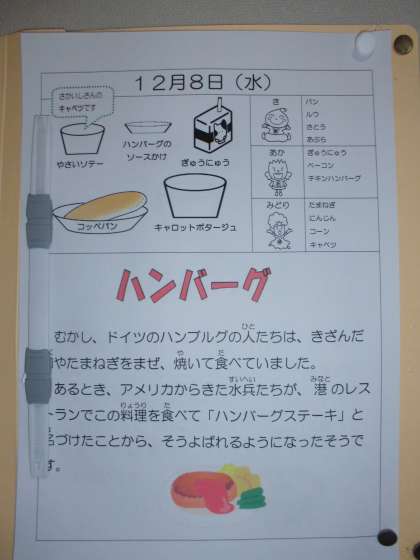 12月8日(水)
さかいしさんの
キャベツです
やさいソテー
ハンバーグの
ソースかけ
ぎゅうにゅう
コッペパン
キャロットポタージュ
き
パン
ルウ
さとう
あぶら
あか
ぎゅうにゅう
ベーコン
チキンハンバーグ
みどり
たまねぎ
にんじん
コーン
キャベツ
ハンバーグ
むかし、ドイツのハンブルグの人たちは、きざんだ
やたまねぎをまぜ、焼いて食べていました。
あるとき、アメリカからきた水兵たちが、港のレス
トランでこの料理を食べて「ハンバーグステーキ」と
づけたことから、そうよばれるようになったそうで
す。